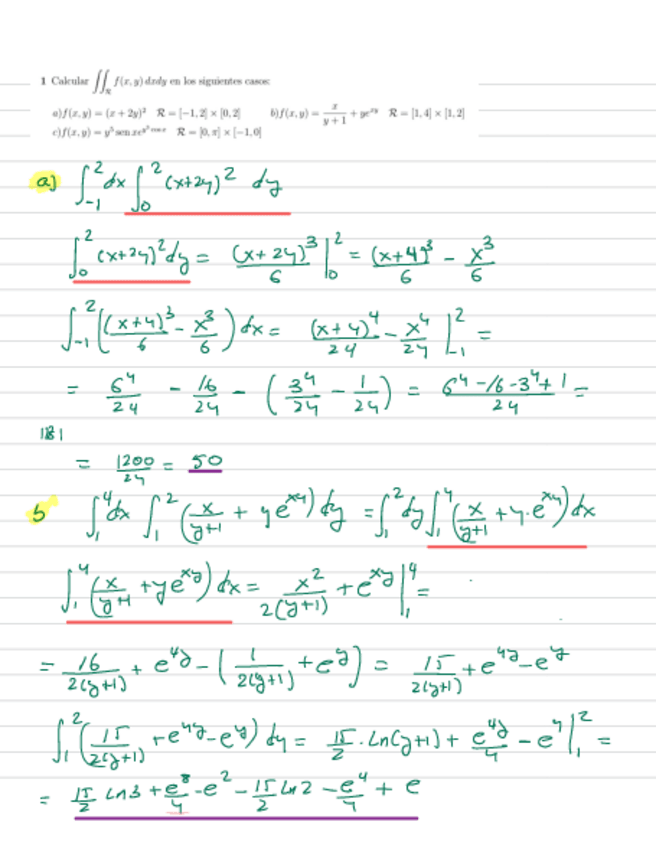 1 Calcular ∬_R f(x, y) dxdy en los siguientes casos:
a) f(x, y) = (x + 2y)² R = [−1, 2] × [0, 2] b) f(x, y) = x/(y + 1) + ye^{xy} R = [1, 4] × [1, 2]
c) f(x, y) = y⁵ sen x e^{y³ cos x} R = [0, π] × [−1, 0]
a) ∫_{-1}^{2} dx ∫_{0}^{2} (x+2y)² dy
∫_{0}^{2} (x+2y)² dy = (x+2y)³/6 |_{0}^{2} = (x+4)³/6 − x³/6
∫_{-1}^{2} ((x+4)³/6 − x³/6) dx = (x+4)⁴/24 − x⁴/24 |_{-1}^{2} =
= 6⁴/24 − 16/24 − (3⁴/24 − 1/24) = (6⁴ − 16 − 3⁴ + 1)/24 =
181
= 1200/24 = 50
b ∫_{1}^{4} dx ∫_{1}^{2} (x/(y+1) + ye^{xy}) dy = ∫_{1}^{2} dy ∫_{1}^{4} (x/(y+1) + y·e^{xy}) dx
∫_{1}^{4} (x/(y+1) + ye^{xy}) dx = x²/(2(y+1)) + e^{xy} |_{1}^{4} =
= 16/(2(y+1)) + e^{4y} − (1/(2(y+1)) + e^{y}) = 15/(2(y+1)) + e^{4y} − e^{y}
∫_{1}^{2} (15/(2(y+1)) + e^{4y} − e^{y}) dy = 15/2 · Ln(y+1) + e^{4y}/4 − e^{y} |_{1}^{2} =
= 15/2 Ln3 + e⁸/4 − e² − 15/2 Ln2 − e⁴/4 + e